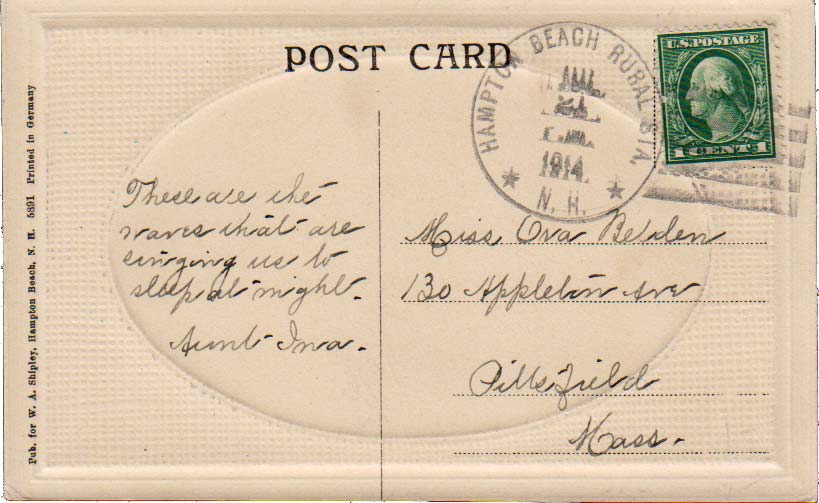 POST CARD
HAMPTON BEACH RURAL STA.
1914
N. H.
U.S. POSTAGE
1 CENT 1
These are the
waves that are
singing us to
sleep at night.
Aunt Ina.
Miss Ova Belden
130 Appleton Ave
Pittsfield
Mass.
Pub. for W. A. Shipley, Hampton Beach, N. H. 5891 Printed in Germany